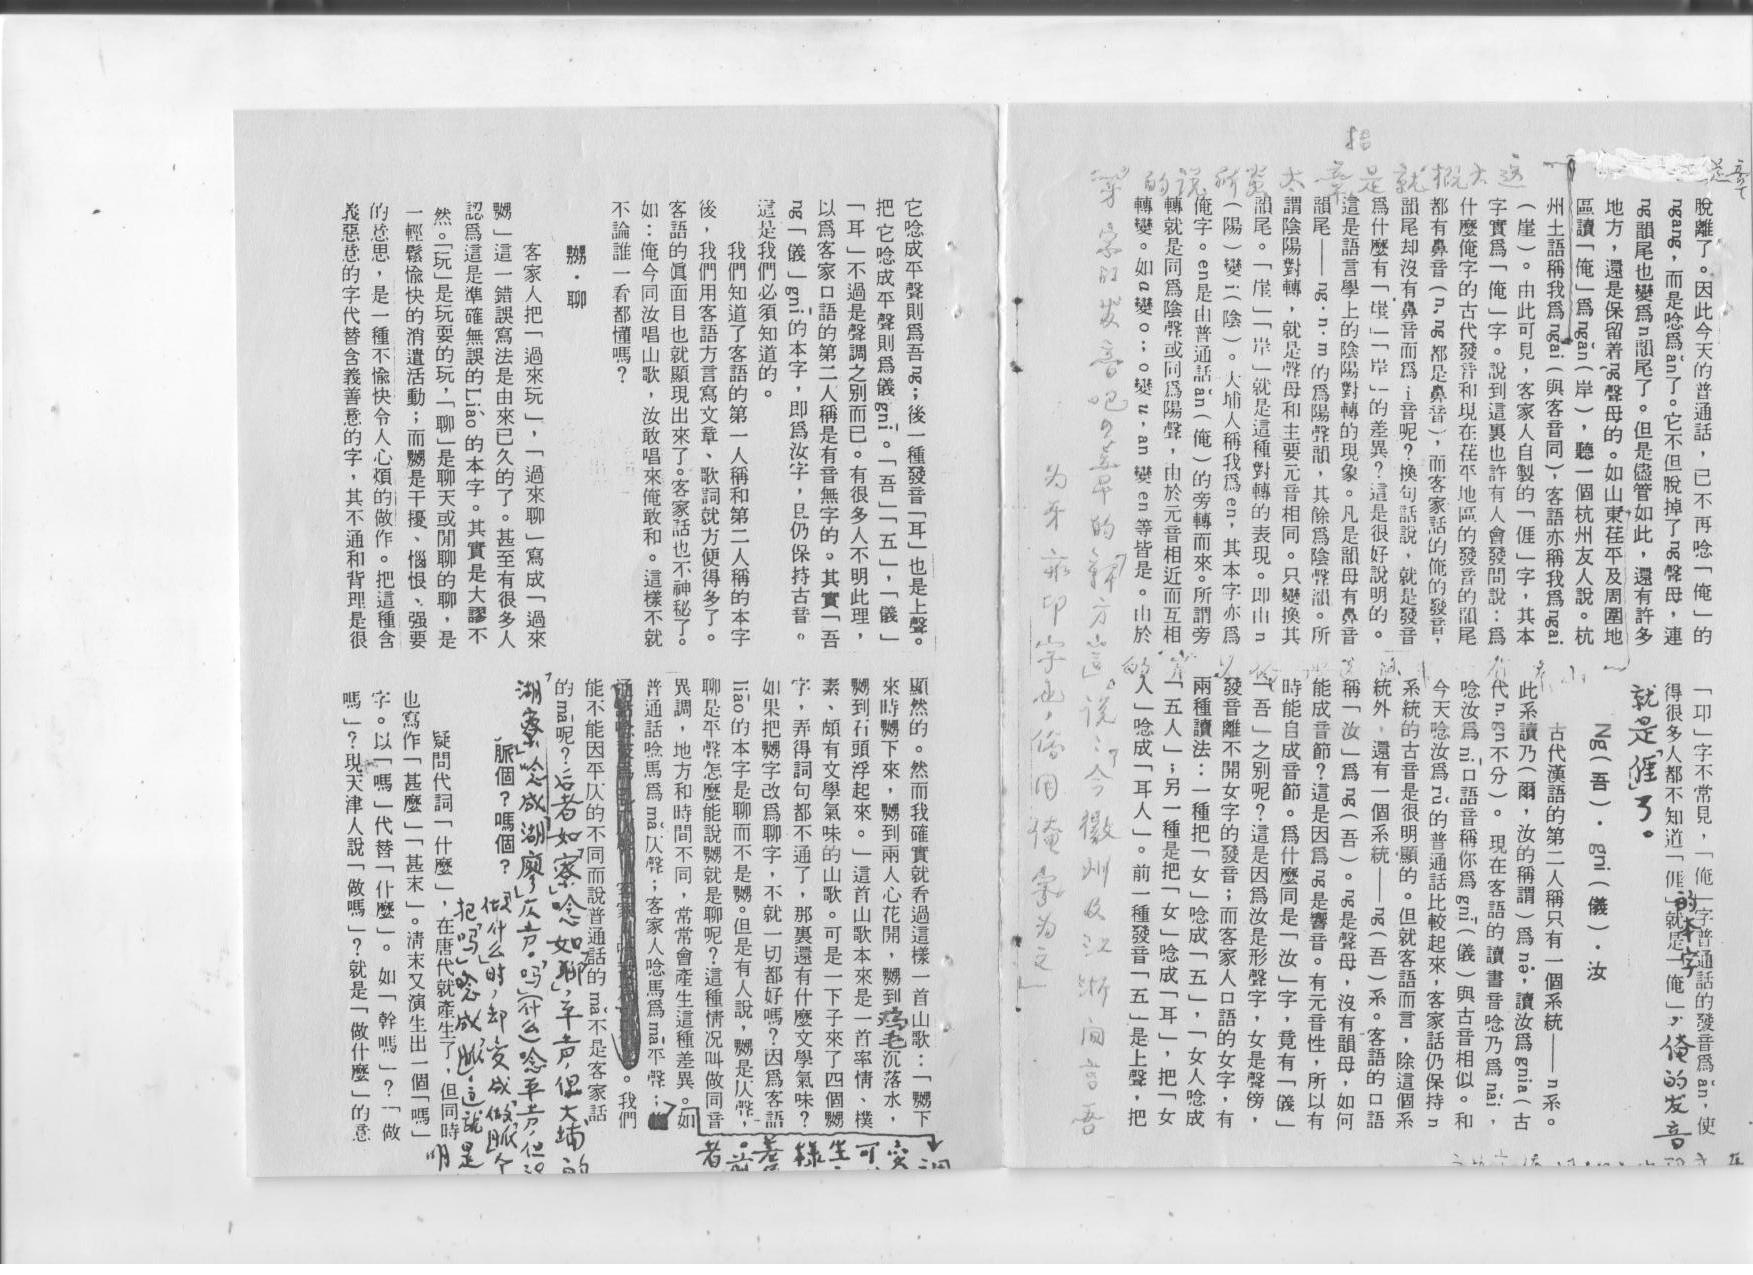 脫離了。因此今天的普通話，已不再唸「俺」的
ngang，而是唸爲ăn了。它不但脫掉了ng聲母，連
ng韻尾也變爲n韻尾了。但是儘管如此，還有許多
地方，還是保留着ng聲母的。如山東茌平及周圍地
區讀「俺」爲ngăn（岸），聽一個杭州友人說。杭
州土語稱我爲ngai（與客音同），客語亦稱我爲ngai
（崖）。由此可見，客家人自製的「𠊎」字，其本
字實爲「俺」字。說到這裏也許有人會發問說：爲
什麼俺字的古代發音和現在茌平地區的發音的韻尾
都有鼻音（n, ng都是鼻音），而客家話的俺的發音，
韻尾却沒有鼻音而爲i音呢？換句話說，就是發音
爲什麼有「崖」「岸」的差異？這是很好說明的。
這是語言學上的陰陽對轉的現象。凡是韻母有鼻音
韻尾——ng·n·m的爲陽聲韻，其餘爲陰聲韻。所
謂陰陽對轉，就是聲母和主要元音相同。只變換其
韻尾。「崖」「岸」就是這種對轉的表現。即由n
（陽）變i（陰）。大埔人稱我爲en，其本字亦爲
俺字。en是由普通話ăn（俺）的旁轉而來。所謂旁
轉就是同爲陰聲或同爲陽聲，由於元音相近而互相
轉變。如a變o；o變u，an變en等皆是。由於
「卬」字不常見，「俺」字普通話的發音爲ăn，使
得很多人都不知道「𠊎」的本字就是「俺」，俺的发音
就是「𠊎」了。
Ng（吾）·gni（儀）·汝
古代漢語的第二人稱只有一個系統——n系。
此系讀乃（爾，汝的稱謂）爲nə，讀汝爲gnia（古
代n gn不分）。現在客語的讀書音唸乃爲nāi，
唸汝爲ni口語音稱你爲gni（儀）與古音相似。和
今天唸汝爲rŭ的普通話比較起來，客家話仍保持n
系統的古音是很明顯的。但就客語而言，除這個系
統外，還有一個系統——ng（吾）系。客語的口語
稱「汝」爲ng（吾）。ng是聲母，沒有韻母，如何
能成音節？這是因爲ng是響音。有元音性，所以有
時能自成音節。爲什麼同是「汝」字，竟有「儀」
「吾」之別呢？這是因爲汝是形聲字，女是聲傍，
發音離不開女字的發音；而客家人口語的女字，有
兩種讀法：一種把「女」唸成「五」，「女人唸成
「五人」；另一種是把「女」唸成「耳」，把「女
人」唸成「耳人」。前一種發音「五」是上聲，把
它唸成平聲則爲吾ng；後一種發音「耳」也是上聲。
把它唸成平聲則爲儀gnī。「吾」「五」，「儀」
「耳」不過是聲調之別而已。有很多人不明此理，
以爲客家口語的第二人稱是有音無字的。其實「吾
ng「儀」gnī的本字，即爲汝字，且仍保持古音。
這是我們必須知道的。
我們知道了客語的第一人稱和第二人稱的本字
後，我們用客語方言寫文章、歌詞就方便得多了。
客語的眞面目也就顯現出來了。客家話也不神秘了。
如：俺今同汝唱山歌，汝敢唱來俺敢和。這樣不就
不論誰一看都懂嗎？
嬲·聊
客家人把「過來玩」，「過來聊」寫成「過來
嬲」這一錯誤寫法是由來已久的了。甚至有很多人
認爲這是準確無誤的Liáo的本字。其實是大謬不
然。「玩」是玩耍的玩，「聊」是聊天或閒聊的聊，是
一輕鬆愉快的消遣活動；而嬲是干擾、惱恨、强要
的意思，是一種不愉快令人心煩的做作。把這種含
義惡意的字代替含義善意的字，其不通和背理是很
顯然的。然而我確實就看過這樣一首山歌：「嬲下
來時嬲下來，嬲到兩人心花開，嬲到鷄毛沉落水，
嬲到石頭浮起來。」這首山歌本來是一首率情、樸
素、頗有文學氣味的山歌。可是一下子來了四個嬲
字，弄得詞句都不通了，那裏還有什麼文學氣味？
如果把嬲字改爲聊字，不就一切都好嗎？因爲客語
liāo的本字是聊而不是嬲。但是有人說，嬲是仄聲，
聊是平聲怎麼能說嬲就是聊呢？這種情况叫做同音
異調，地方和時間不同，常常會產生這種差異。如
普通話唸馬爲mǎ仄聲；客家人唸馬爲mā平聲；
。我們
能不能因平仄的不同而說普通話的mǎ不是客家話
的mā呢？后者如「寮」唸如「聊」，平声，但大埔的
「湖寮」唸成「湖廖」仄声。「吗」（什么）唸平声，但
脈個？嗎個？
疑問代詞「什麼」，在唐代就產生了，但同時
也寫作「甚麼」「甚末」。清末又演生出一個「嗎」
字。以「嗎」代替「什麼」。如「幹嗎」？「做
嗎」？現天津人說「做嗎」？就是「做什麼」的意